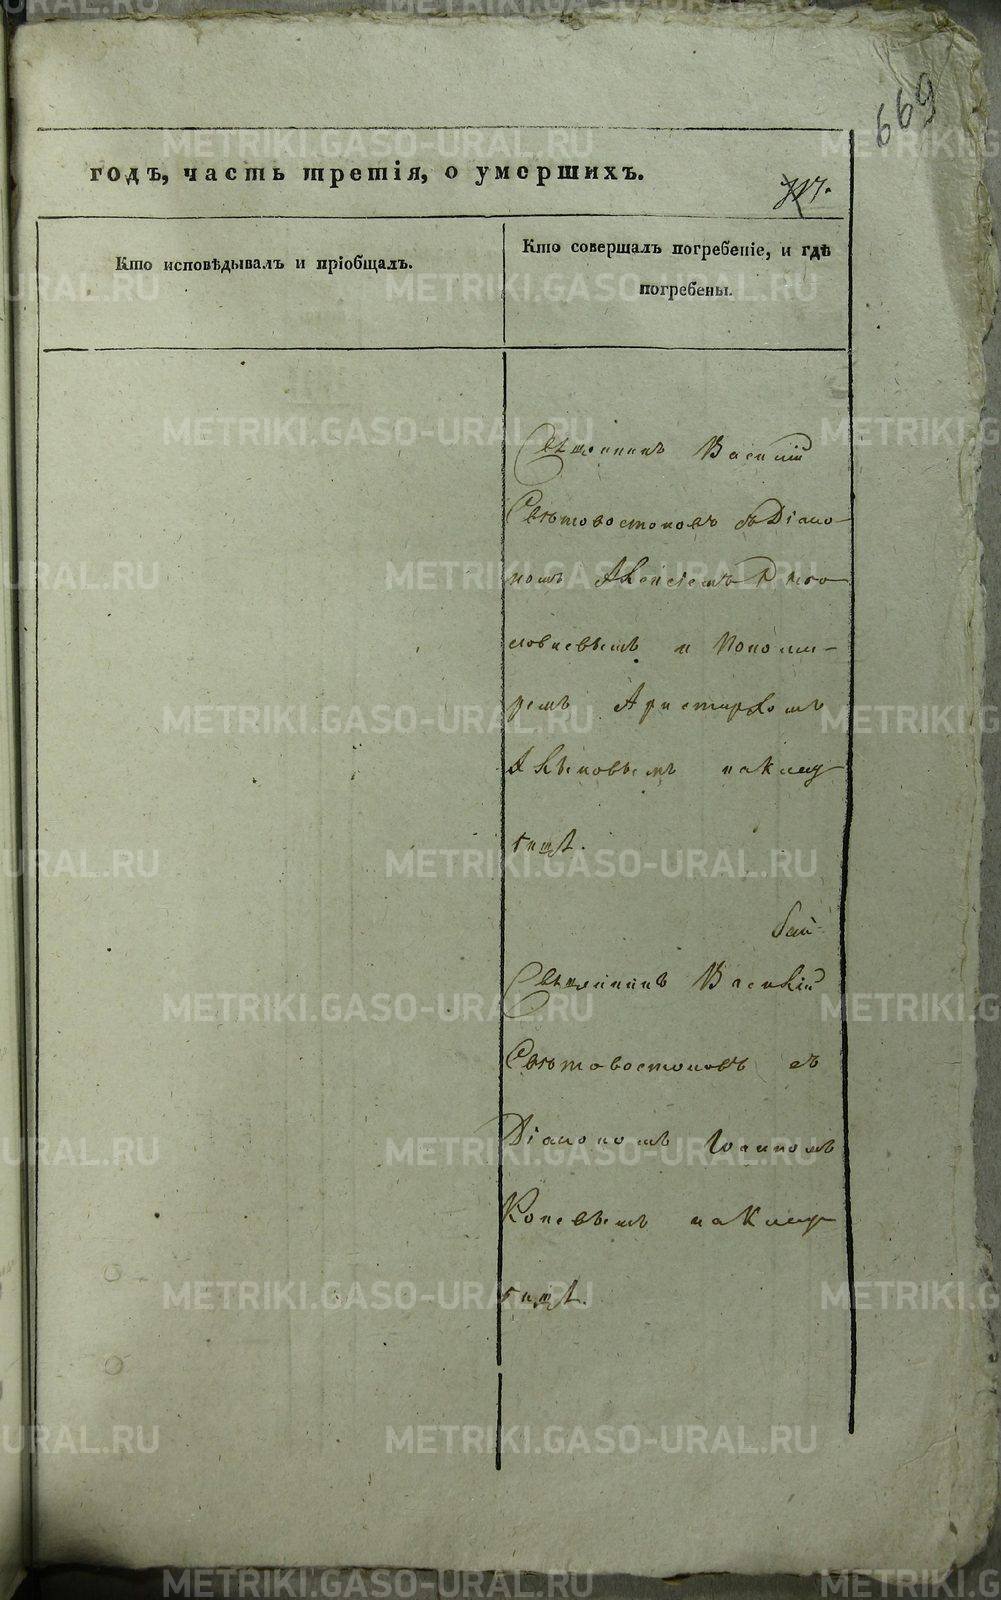 669
годъ, часть третія, о умершихъ.
Кто исповѣдывалъ и пріобщалъ.
Кто совершалъ погребеніе, и гдѣ
погребены.
Священникъ Василій
Свѣтовостоковъ съ Діако-
номъ Алексіемъ
и Понома-
ремъ Аристархомъ
на Клад
бищѣ.
Священникъ Василій
Свѣтовостоковъ съ
Діакономъ Іоанномъ
Коневымъ на Клад
бищѣ.
METRIKI.GASO-URAL.RU